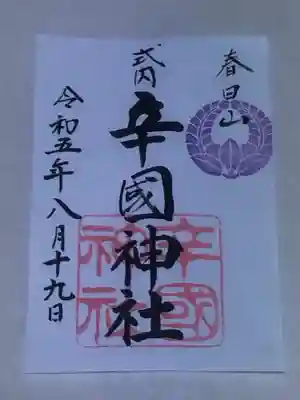 春日山
式内
辛國神社
令和五年八月十九日
辛國
神社